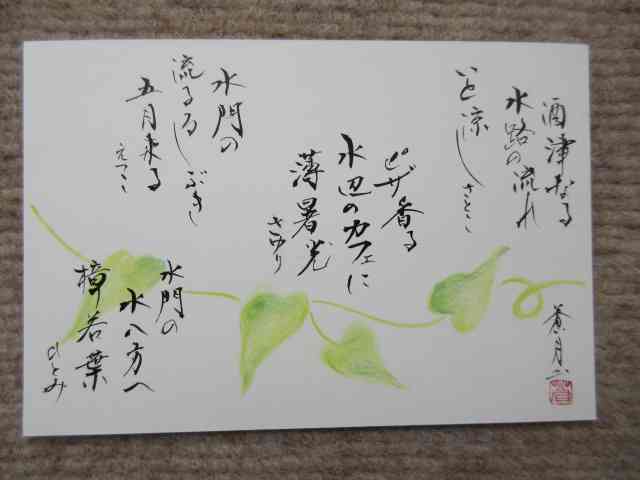 酒津なる
水路の流れ
いと涼し
さとこ
ピザ香る
水辺のカフェに
薄暑光
さゆり
水門の
流るるしぶきし
五月来る
えつこ
水門の
水八方へ
樟若葉
ひとみ